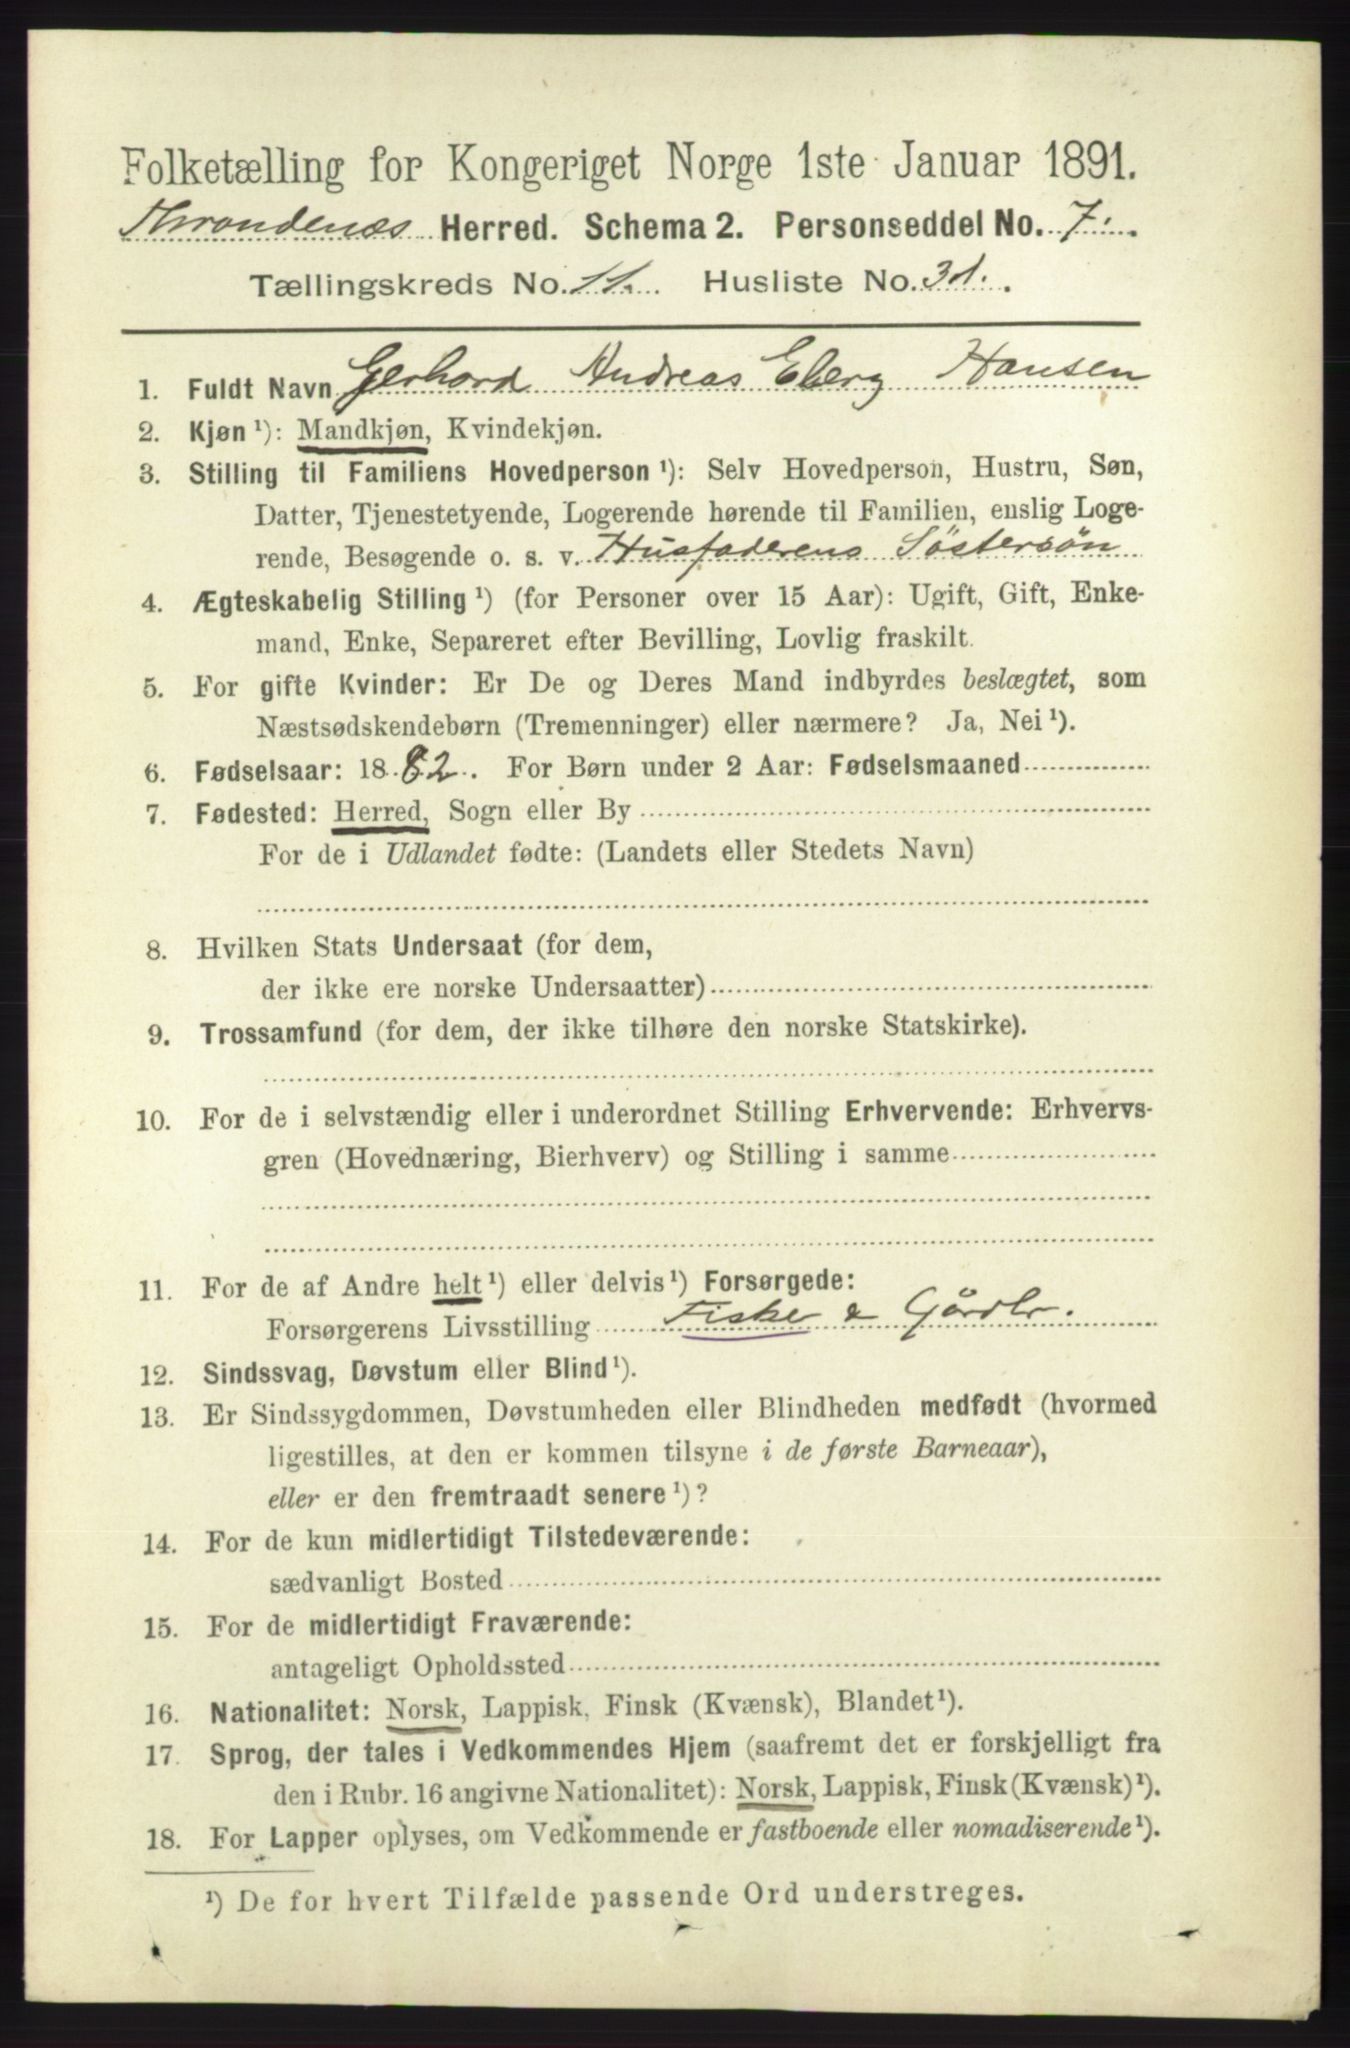 Folketælling for Kongeriget Norge 1ste Januar 1891.
Throndenæs Herred. Schema 2. Personseddel No. 7.
Tællingskreds No. 11. Husliste No. 31.
1. Fuldt Navn Gerhard Andreas Eberg Hansen
2. Kjøn ¹): Mandkjøn, Kvindekjøn.
3. Stilling til Familiens Hovedperson ¹): Selv Hovedperson, Hustru, Søn,
Datter, Tjenestetyende, Logerende hørende til Familien, enslig Loge-
rende, Besøgende o. s. v. Husfaderens Söstersön
4. Ægteskabelig Stilling ¹) (for Personer over 15 Aar): Ugift, Gift, Enke-
mand, Enke, Separeret efter Bevilling, Lovlig fraskilt.
5. For gifte Kvinder: Er De og Deres Mand indbyrdes beslægtet, som
Næstsødskendebørn (Tremenninger) eller nærmere? Ja, Nei ¹).
6. Fødselsaar: 1882. For Børn under 2 Aar: Fødselsmaaned
7. Fødested: Herred, Sogn eller By
For de i Udlandet fødte: (Landets eller Stedets Navn)
8. Hvilken Stats Undersaat (for dem,
der ikke ere norske Undersaatter)
9. Trossamfund (for dem, der ikke tilhøre den norske Statskirke).
10. For de i selvstændig eller i underordnet Stilling Erhvervende: Erhvervs-
gren (Hovednæring, Bierhverv) og Stilling i samme
11. For de af Andre helt ¹) eller delvis ¹) Forsørgede:
Forsørgerens Livsstilling Fisker & Gårdbr.
12. Sindssvag, Døvstum eller Blind ¹).
13. Er Sindssygdommen, Døvstumheden eller Blindheden medfødt (hvormed
ligestilles, at den er kommen tilsyne i de første Barneaar),
eller er den fremtraadt senere ¹)?
14. For de kun midlertidigt Tilstedeværende:
sædvanligt Bosted
15. For de midlertidigt Fraværende:
antageligt Opholdssted
16. Nationalitet: Norsk, Lappisk, Finsk (Kvænsk), Blandet ¹).
17. Sprog, der tales i Vedkommendes Hjem (saafremt det er forskjelligt fra
den i Rubr. 16 angivne Nationalitet): Norsk, Lappisk, Finsk (Kvænsk) ¹).
18. For Lapper oplyses, om Vedkommende er fastboende eller nomadiserende ¹).
¹) De for hvert Tilfælde passende Ord understreges.